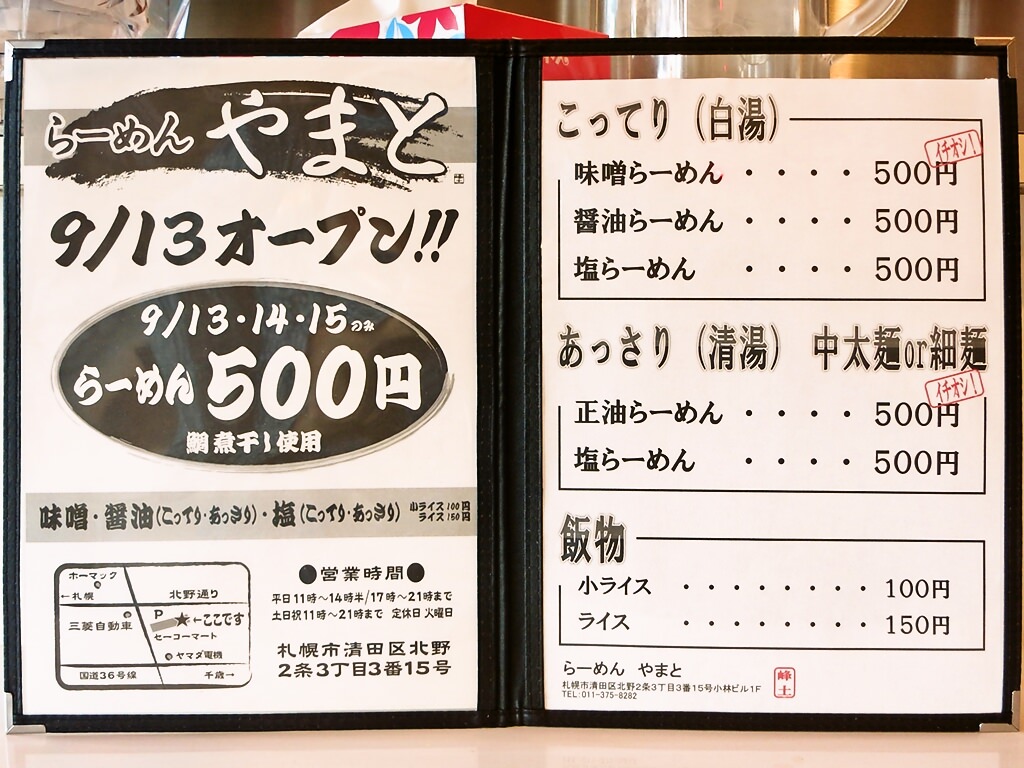 らーめん やまと
9/13オープン!!
9/13・14・15のみ
らーめん500円
鯛煮干し使用
味噌・醤油(こってり・あっさり)・塩(こってり・あっさり) 小ライス100円 ライス150円
ホーマック
←札幌 北野通り
三菱自動車 P ★←ここです
セーコーマート
ヤマダ電機
国道36号線 千歳→
●営業時間●
平日11時〜14時半/17時〜21時まで
土日祝11時〜21時まで 定休日 火曜日
札幌市清田区北野
2条3丁目3番15号
こってり（白湯）
イチオシ!
味噌らーめん ・・・・ 500円
醤油らーめん ・・・・ 500円
塩らーめん ・・・・ 500円
あっさり（清湯） 中太麺or細麺
イチオシ!
正油らーめん ・・・・ 500円
塩らーめん ・・・・ 500円
飯物
小ライス ・・・・・・・・ 100円
ライス ・・・・・・・・ 150円
らーめん やまと
札幌市清田区北野2条3丁目3番15号小林ビル1F
TEL:011-375-8282